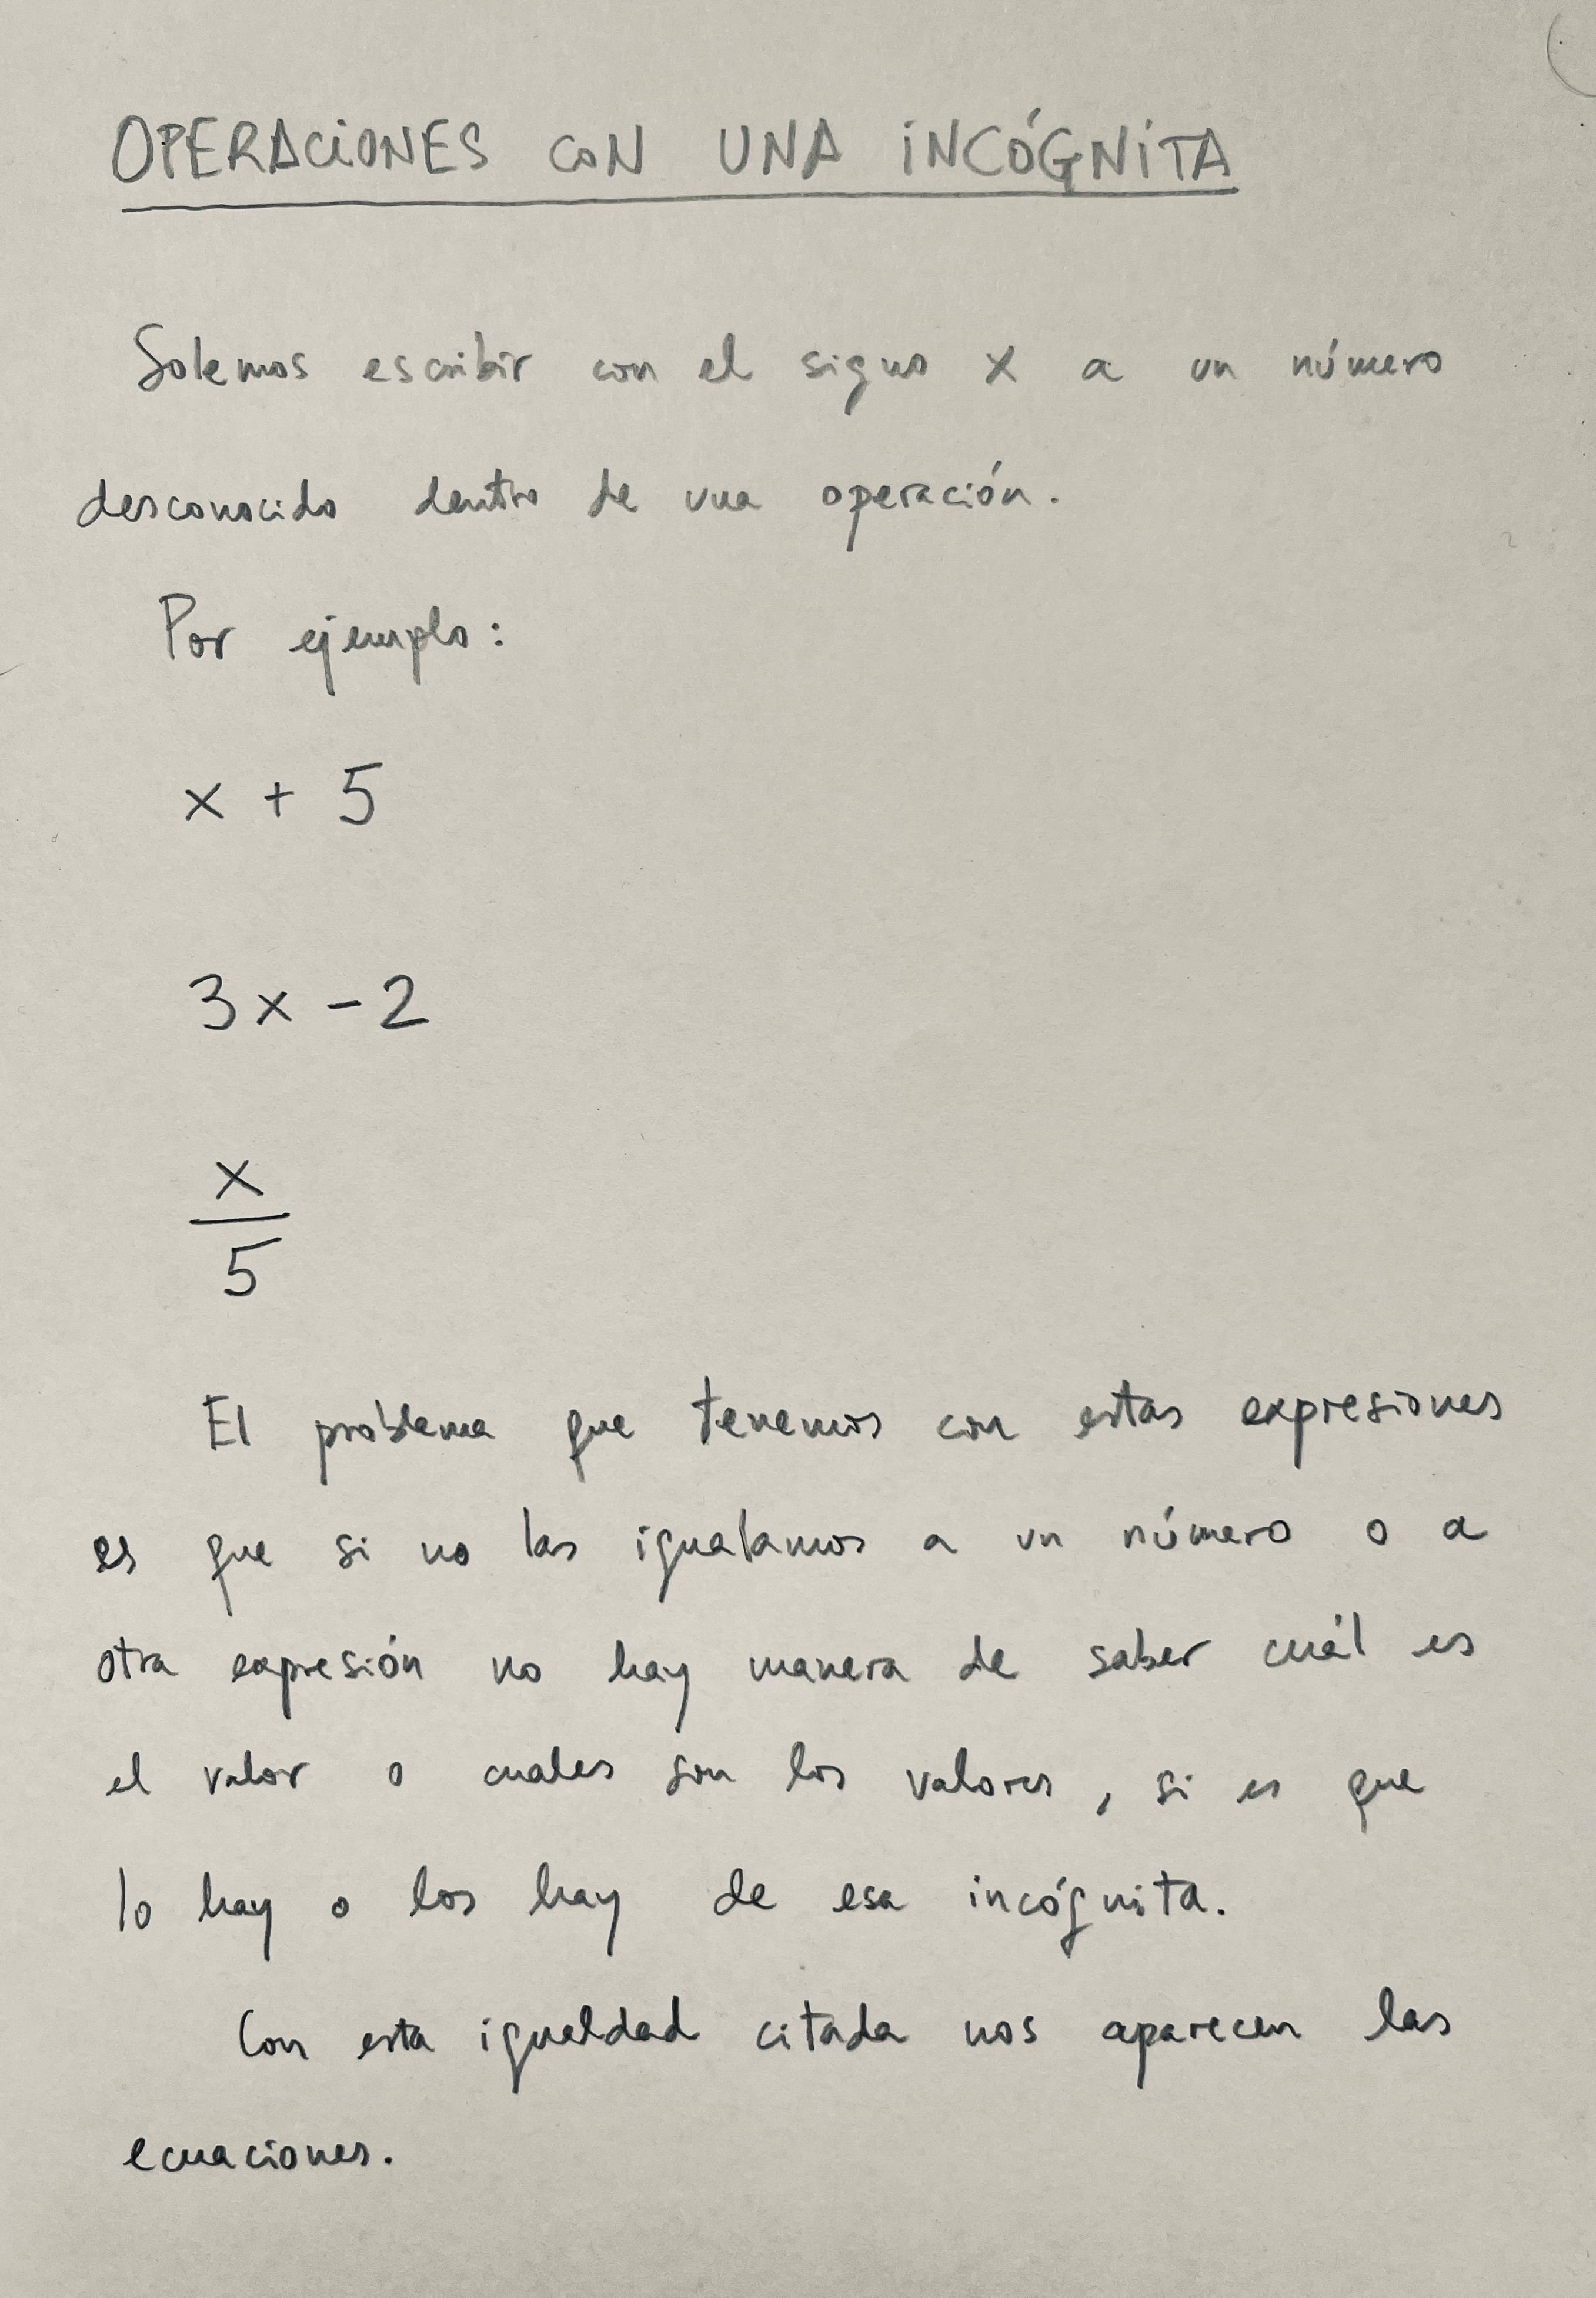 OPERACIONES CON UNA INCÓGNITA
Solemos escribir con el signo x a un número
desconocido dentro de una operación.
Por ejemplo:
x + 5
3x - 2
x
5
El problema que tenemos con estas expresiones
es que si no las igualamos a un número o a
otra expresión no hay manera de saber cuál es
el valor o cuales son los valores, si es que
lo hay o los hay de esa incógnita.
Con esta igualdad citada nos aparecen las
ecuaciones.